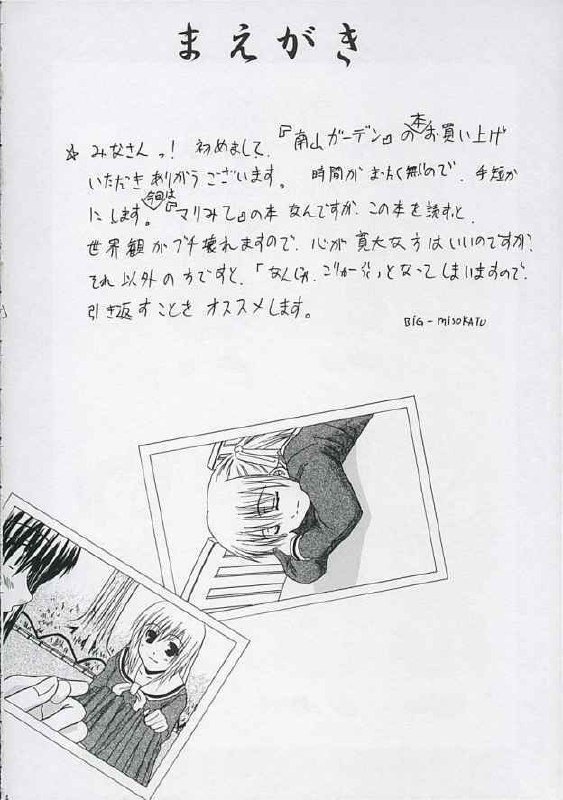 まえがき
☆ みなさんっ! 初めまして、『南山ガーデン』の本お買い上げ
いただき ありがとうございます。 時間がまったく無いので、手短か
にします。今回は『マリみて』の本 なんですが、この本を読すと、
世界観がプチ壊れますので、心が寛大な方はいいのですが、
それ以外の方ですと、「なんじゃ、ごりゃー!!」となってしまいますので、
引き返すことを オススメします。
BIG-MISOKATU